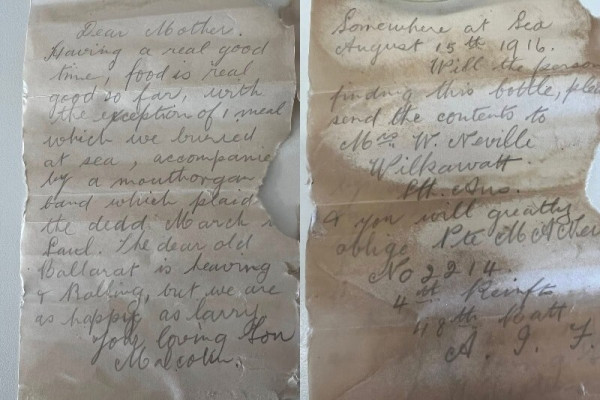 Dear Mother.
Having a real good
time, food is real
good so far, with
the exception of 1 meal
which we burried
at sea, accompanie
by a mouthorgan
band which plaid
the dedd March
Saul. The dear old
Ballarat is heaving
& Rolling, but we are
as happy as larry
Your loving Son
Malcolm.
Somewhere at Sea
August 15th 1916.
Will the person
finding this bottle, plea
send the contents to
Mrs W. Neville
Wilkawatt
Sth. Aus.
& you will greatly
oblige Pte M A Nev
No 2214.
4th Reinfts
48th Batt
A. I. F.